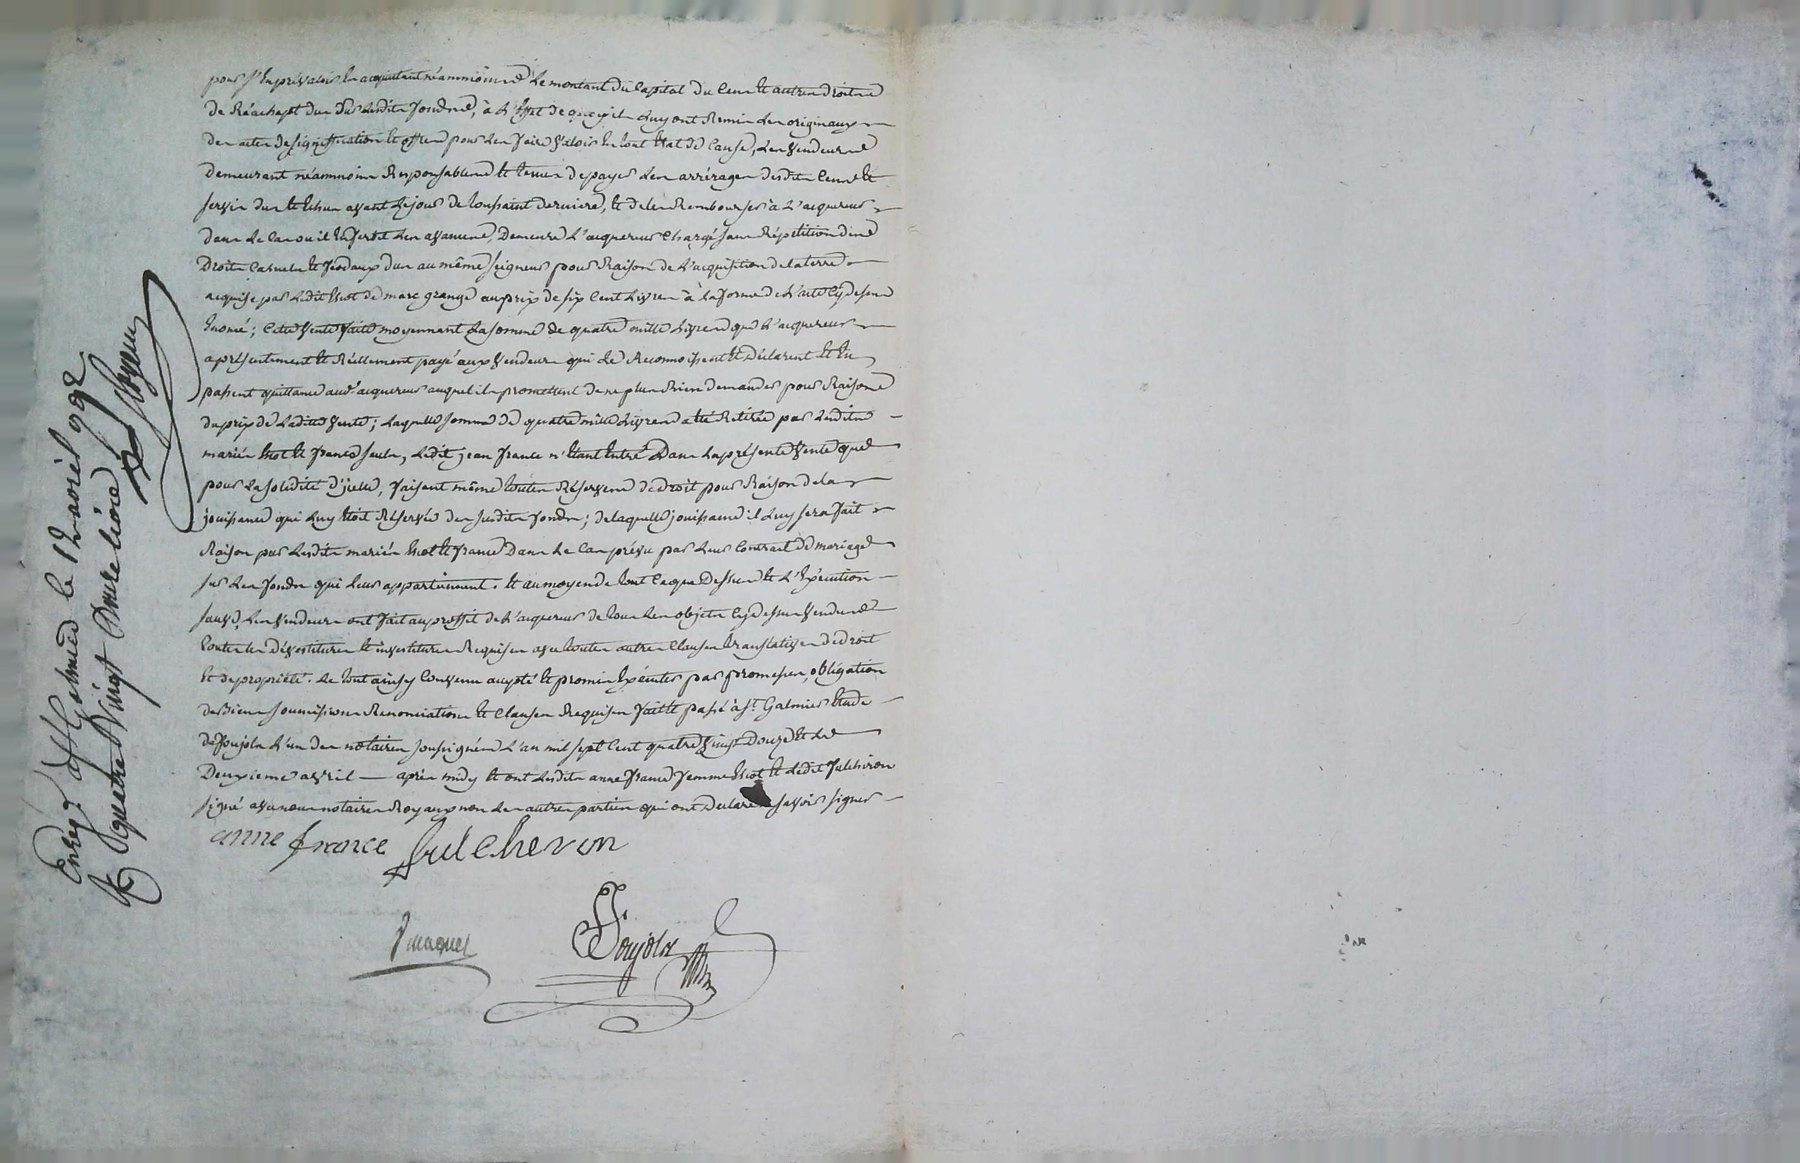 pour s'en prévaloir en acquittant néammoins le montant du capital du cens et autres droits
de Réachapt dus sur lesdits fonds, à l'effet de quoy il luy ont Remis les originaux
des actes de signiffication et offres pour les faire valoir en tout état de cause, les vendeurs
demeurant néammoins Responsables et tenus de payer les arrérages desdits cens et
servis dus et échus avant le jour de toussaint dernière, et de les Rembourser à l'acquereur
dans le cas ou il en feroit les avances, Demeure l'acquereur chargé sans Répétition des
Droits casuels et féodaux dus au même seigneur pour Raison de l'acquisition de la terre
acquise par ledit de marc grange au prix de six cent livres à la forme de l'acte cy dessus
énoncé; Cette vente faite moyennant la somme de quatre mille livres que l'acquereur
a présentement et Réellement payé aux vendeurs qui le Reconnoissent et déclarent et en
passent quittance aud. acquereur auquel ils promettent de ne plus Rien demander pour Raison
du prix de ladite vente; laquelle somme de quatre mille livres a été Retirée par lesdits
mariés et france seuls, ledit jean france n'étant entré Dans la présente vente que
pour la solidité d'jcelle, faisant même toutes Réserves de droit pour Raison de la
jouissance qui luy étoit Réservée des susdits fonds; de laquelle jouissance il luy sera fait
Raison par lesdits mariés et france Dans le cas prévu par leur contrat de mariage
sur les fonds qui leur appartiennent. et au moyen de tout ce que Dessus et l'Exécution
sauve, les vendeurs ont fait au proffit de l'acquereur de tous les objets cy dessus vendus
toutes les dévestitures et investitures Requises avec toutes autres clauses translatives de droit
et de propriété. le tout ainsy convenu accepté et promis Exécuter par promesses, obligation
de Biens soumissions Renonciations et clauses Requises fait et passé à St. Galmier étude
de Poujola l'un des notaires soussignés l'an mil sept cent quatre vingt Douze et le
Deuxieme avril — après midy et ont lesdits anne france femme et ledit fulchiron
signé avec nous notaires Royaux non les autres parties qui ont déclaré ne savoir signer
anne france fulcheron
Poujola
Enreg. à St. Galmier le 12 avril 1792
R. quatre Vingt livres